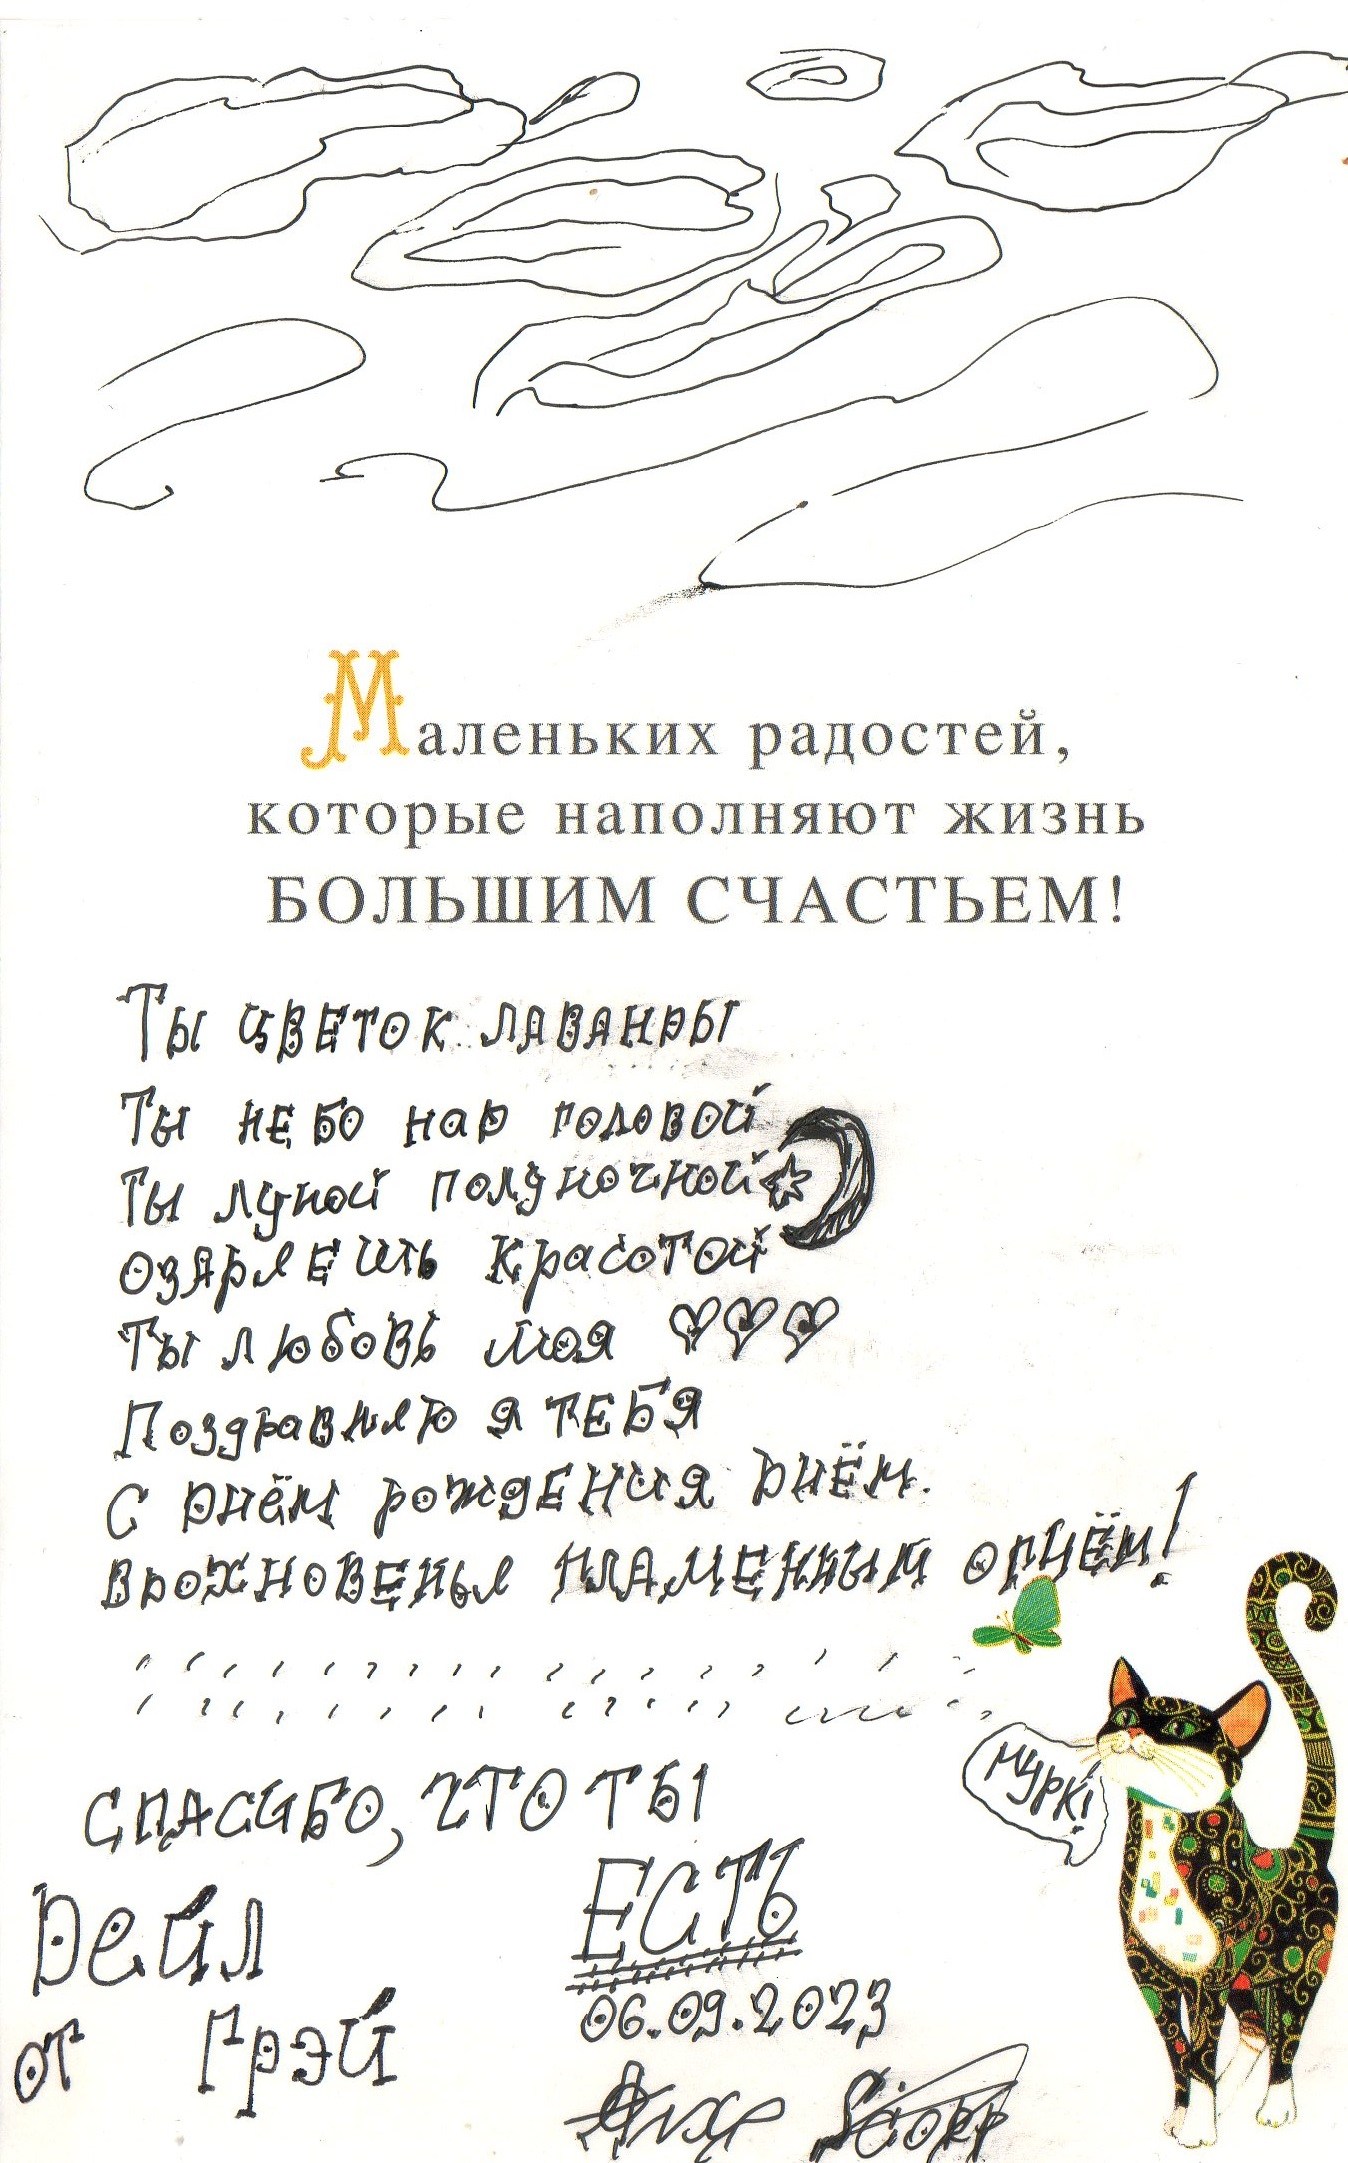 Маленьких радостей,
которые наполняют жизнь
БОЛЬШИМ СЧАСТЬЕМ!
Ты цветок лаванды
Ты небо над головой
Ты луной полуночной
озаряешь красотой
Ты любовь моя
Поздравляю я тебя
С днём рождения днём.
вдохновенья пламенным огнём!
МУРК!
СПАСИБО, ЧТО ТЫ
ЕСТЬ
Дейл
от Грэй
06.09.2023
Scorp